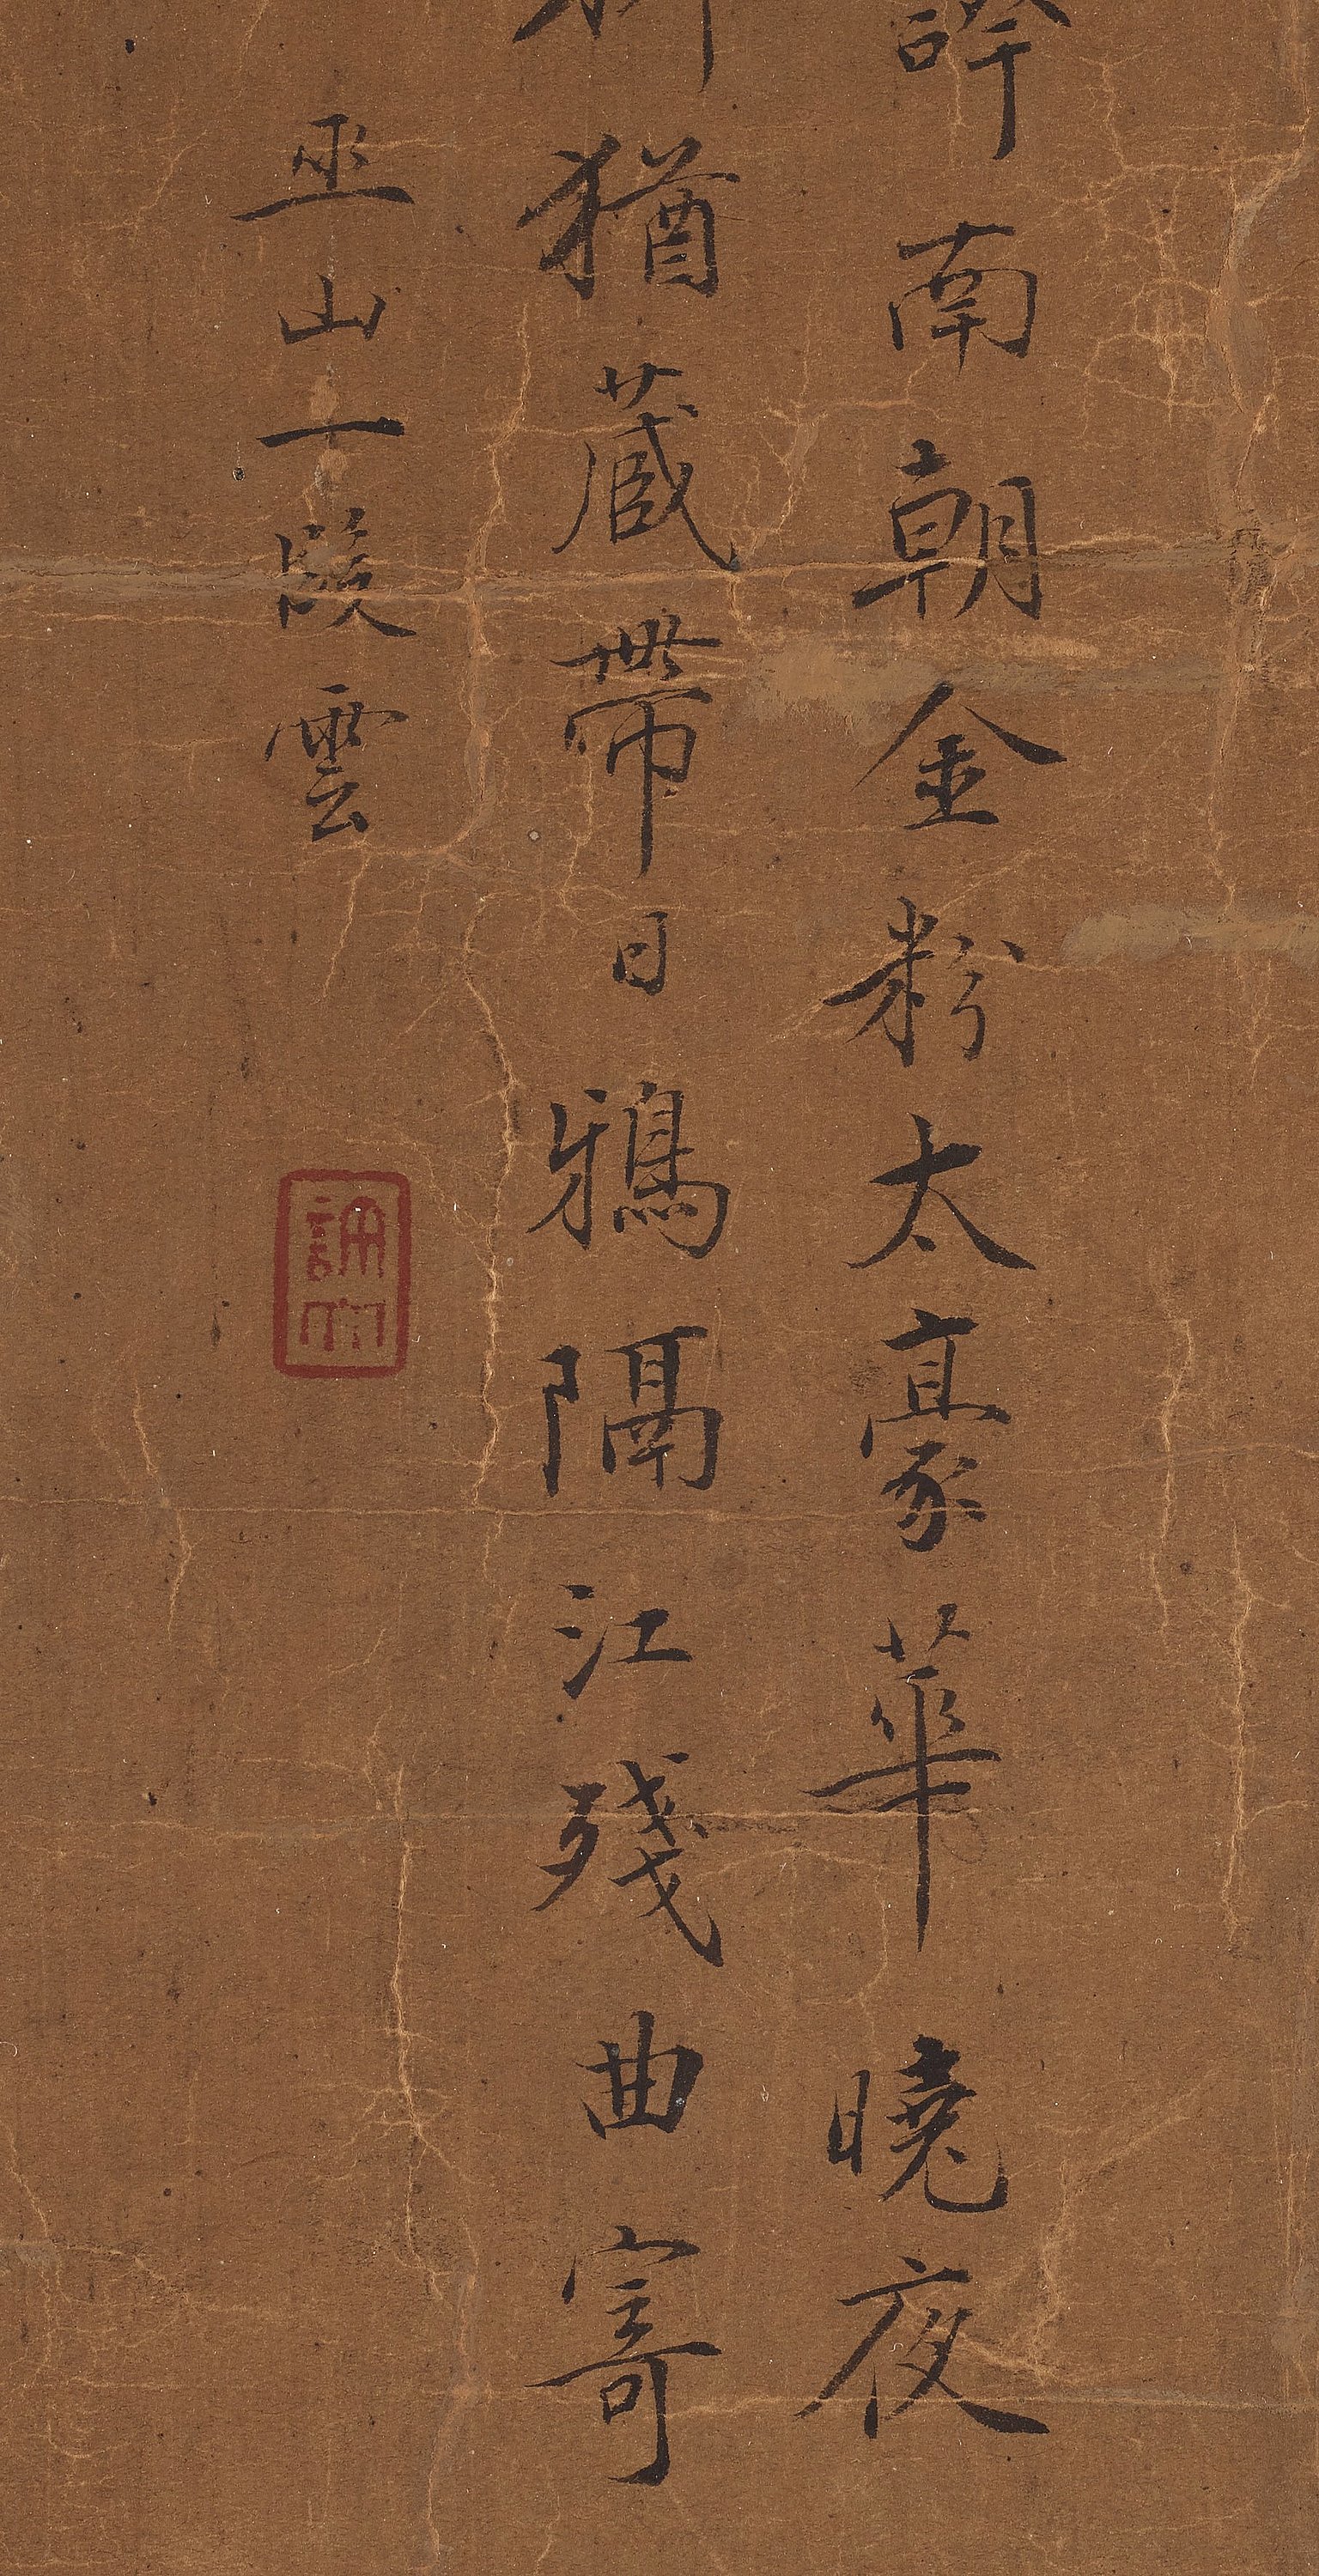 南朝金粉太豪華曉夜
猶藏帶日鴉隔江殘曲寄
巫山一段雲